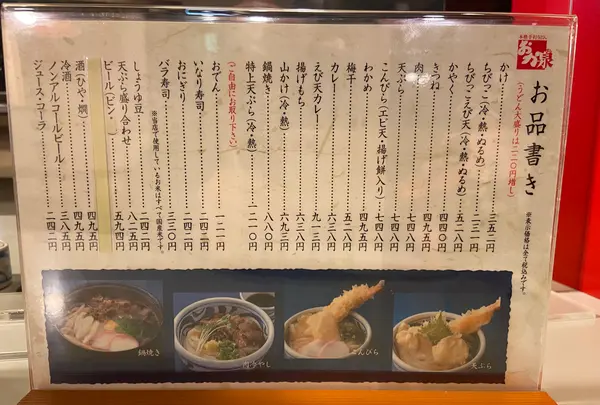 本格手打うどん
おか泉
お品書き
(うどん大盛りは一二〇円増し)
※表示価格は全て税込みです。
かけ…三五二円
ちびっこ(冷・熱・ぬるめ)…二三一円
ちびっこえび天(冷・熱・ぬるめ)…五二八円
かやく…四四〇円
きつね…四九五円
肉…七四八円
天ぷら…七四八円
こんぴら(エビ天・揚げ餅入り)…七四八円
わかめ…四九五円
梅干…五二八円
カレー…六三八円
えび天カレー…九一三円
揚げもち…六三八円
山かけ(冷・熱)…六九三円
鍋焼き…八八〇円
特上天ぷら(冷・熱)…一一〇〇円
(ご自由にお取り下さい)
おでん…一二一円
いなり寿司…二四二円
おにぎり…二四二円
バラ寿司…三三〇円
※当店で使用しているお米はすべて国産米です。
しょうゆ豆…二四二円
天ぷら盛り合わせ…八二五円
ビール(ビン)…五九四円
酒(ひや・燗)…四九五円
冷酒…四九五円
ノンアルコールビール…三八五円
ジュース・コーラ…二四二円
鍋焼き
こんぴら
天ぷら